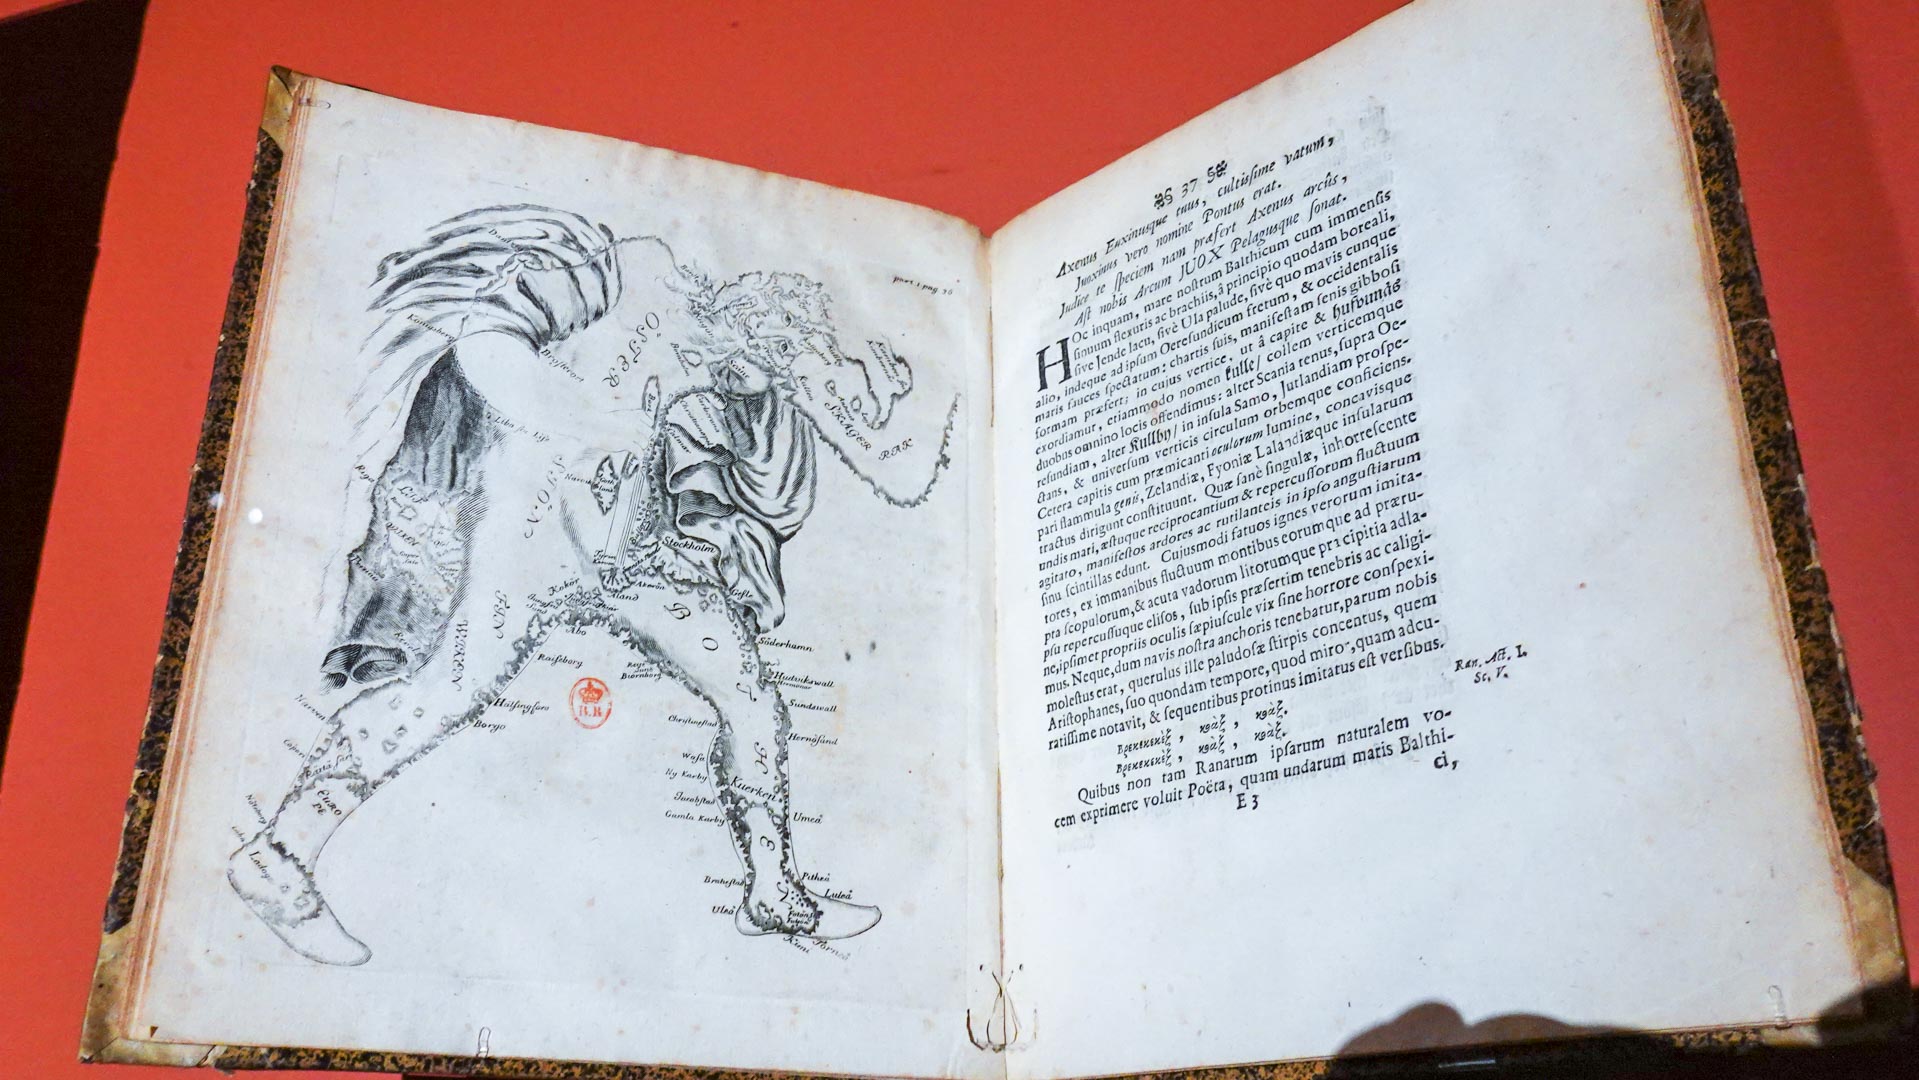 part 1 pag 36
ÖSTER
Königsberg
Brysterort
SKAGER
RAK
Liba sa Lifs
NÖRD
Riga
Stockholm
Gefle
Åland
Abo
B
O
Söderhamn
Raiseborg
Biörnborg
Hudwikswall
Sundswall
Hälsingfors
Borgo
Christinestad
Hernösand
Wasa
Ny Karby
Kuerken
Jacobstad
Gamla Karby
Umeå
EURO
PE
Ladoga
Brahestad
Pitheå
Luleå
Uleå
Kimi
Torneå
B.R
37
Axenus Euxinusque tuus, cultissime vatum,
Juoxinus vero nomine Pontus erat.
Judice te speciem nam præfert Axenus arcûs,
Ast nobis Arcum JUOX Pelagusque sonat.
HOc inquam, mare nostrum Balthicum cum immensis
sinuum flexuris ac brachiis, â principio quodam boreali,
sive Jende lacu, sivè Ula palude, sivè quo mavis cunque
alio, indeque ad ipsum Oeresundicum fretum, & occidentalis
maris fauces spectatum: chartis suis, manifestam senis gibbosi
formam præfert; in cujus vertice, ut â capite & hufvunås
exordiamur, etiammodo nomen Kulle/ collem verticemque
duobus omnino locis offendimus: alter Scania tenus, supra Oe-
resundiam, alter Kullby/ in insula Samo, Jutlandiam prospe-
ctans, & universum verticis circulum orbemque conficiens.
Cetera capitis cum præmicanti oculorum lumine, concavisque
pari flammula genis, Zelandiæ, Fyoniæ Lalandiæque insularum
tractus dirigunt constituunt. Quæ sanè singulæ, inhorrescente
undis mari, æstuque reciprocantium & repercussorum fluctuum
agitato, manifestos ardores ac rutilanteis in ipso angustiarum
sinu scintillas edunt. Cujusmodi fatuos ignes verorum imita-
tores, ex immanibus fluctuum montibus eorumque ad præru-
pta scopulorum, & acuta vadorum litorumque præcipitia adla-
psu repercussuque elisos, sub ipsis præsertim tenebris ac caligi-
ne, ipsimet propriis oculis sæpiuscule vix sine horrore conspexi-
mus. Neque, dum navis nostra anchoris tenebatur, parum nobis
molestus erat, querulus ille paludosæ stirpis concentus, quem
Aristophanes, suo quondam tempore, quod miror, quam adcu-
ratissime notavit, & sequentibus protinus imitatus est versibus.
Ran. Act. I.
Sc. V.
Βρεκεκεκὲξ, κοὰξ, κοὰξ.
Βρεκεκεκὲξ, κοὰξ, κοὰξ.
Quibus non tam Ranarum ipsarum naturalem vo-
cem exprimere voluit Poëta, quam undarum maris Balthi-
E 3
ci,